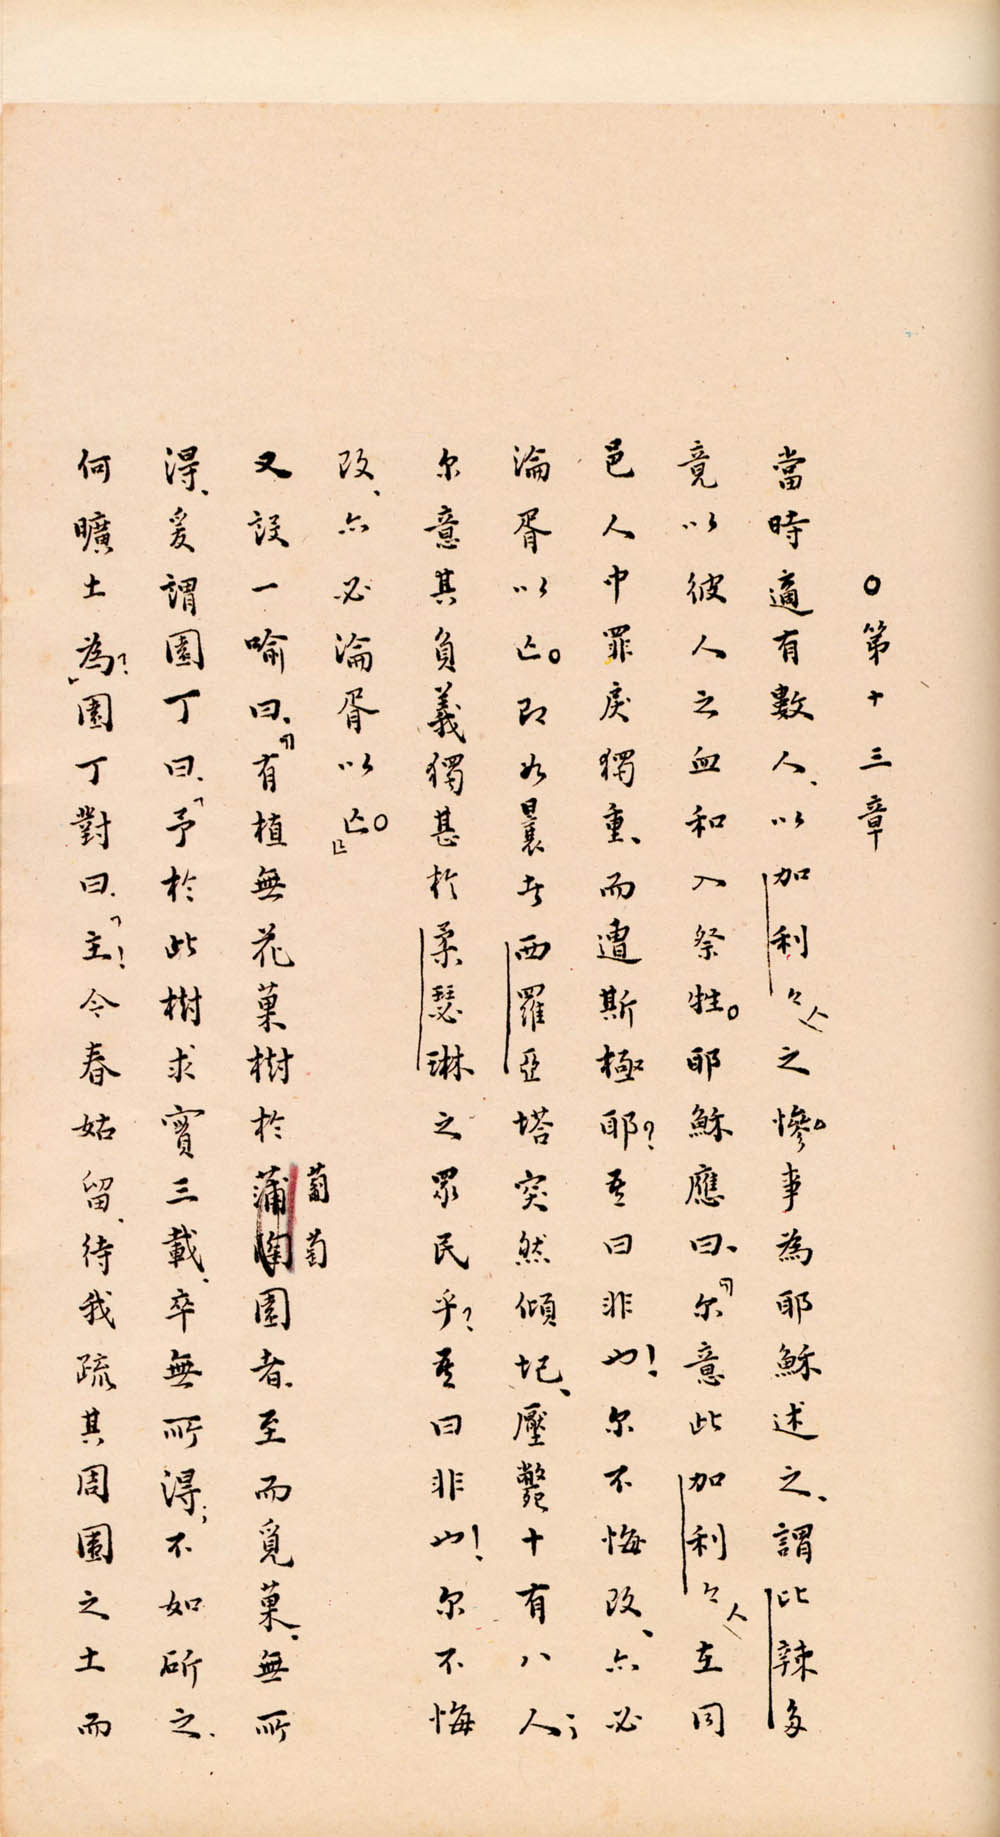 ○第十三章
當時適有數人、以加利々人之慘事為耶穌述之、謂比辣多
竟以彼人之血和入祭牲。耶穌應曰、『尔意此加利々人在同
邑人中罪戾獨重、而遭斯極耶？吾曰非也！尔不悔改、亦必
淪胥以亡。即如曩者西羅亞塔突然傾圮、壓斃十有八人；
尔意其負義獨甚於柔瑟琳之眾民乎？吾曰非也！尔不悔
改、亦必淪胥以亡。』
又設一喻曰、『有植無花菓樹於葡萄園者、至而覓菓、無所
得、爰謂園丁曰、「予於此樹求實三載、卒無所得；不如斫之、
何曠土為？」園丁對曰、「主！今春姑留、待我疏其周圍之土而